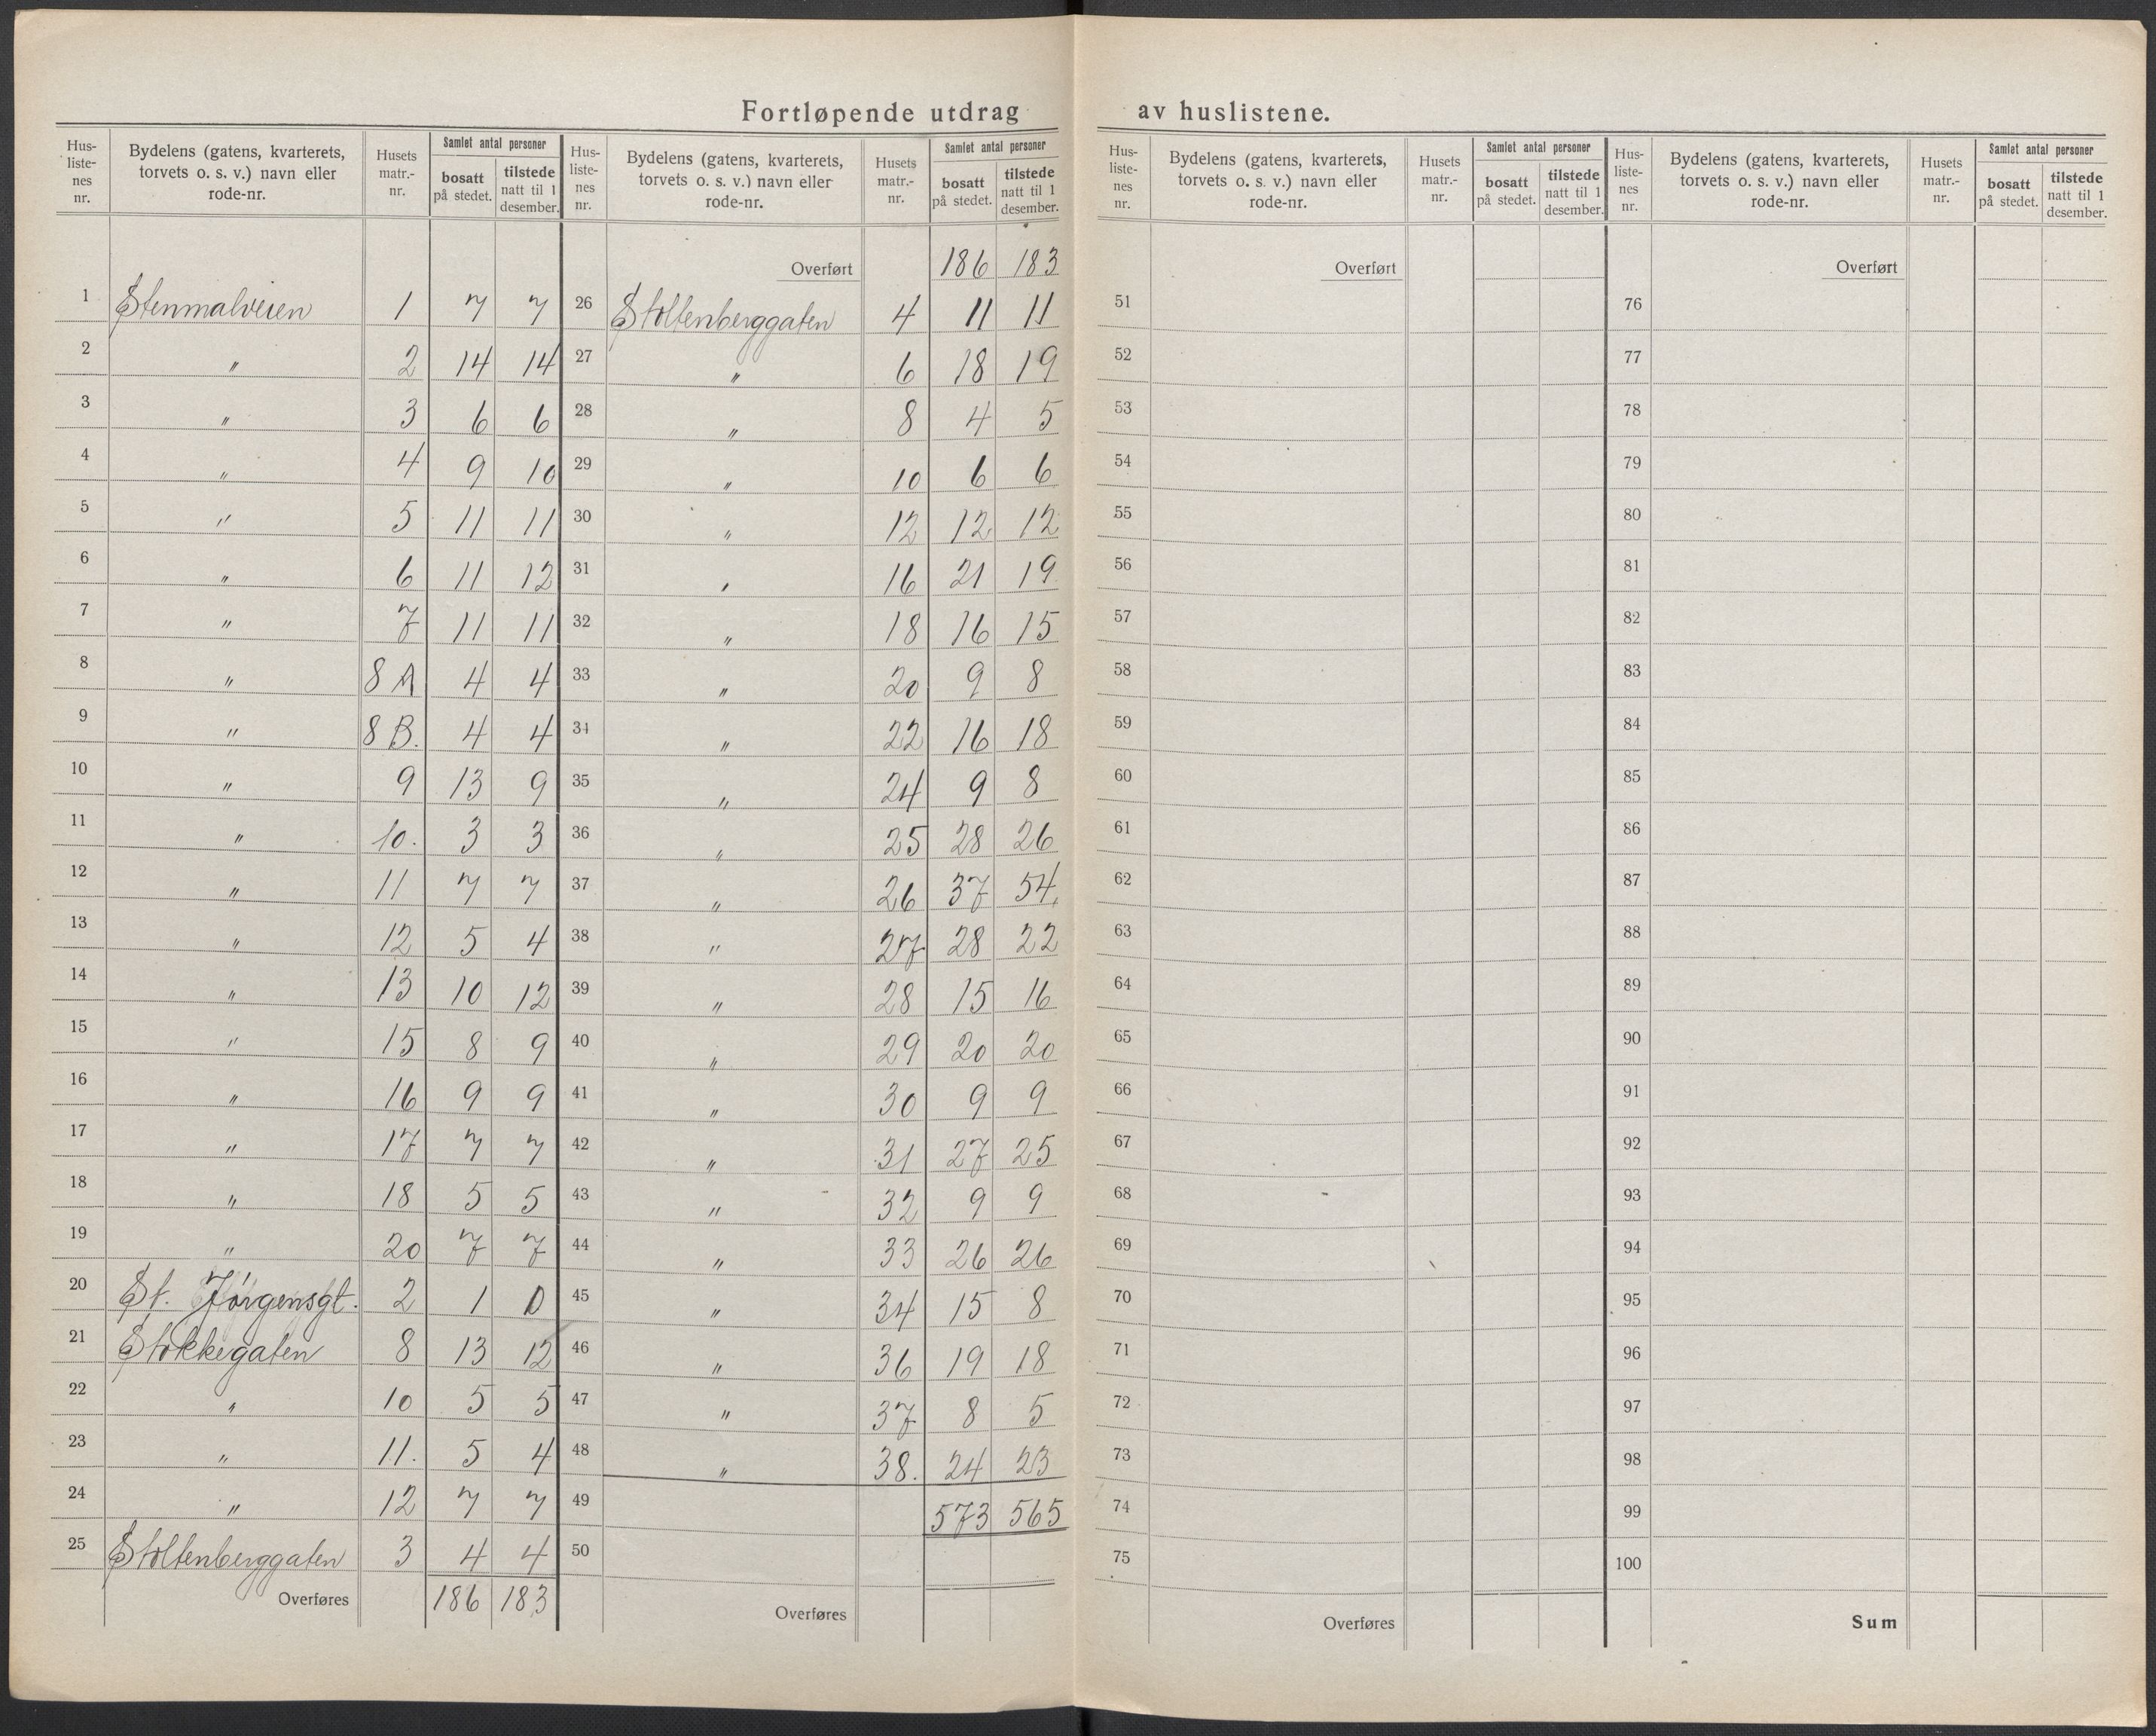 Fortløpende utdrag av huslistene.
Hus-listenes nr. | Bydelens (gatens, kvarterets, torvets o. s. v.) navn eller rode-nr. | Husets matr.-nr. | Samlet antal personer bosatt på stedet. | tilstede natt til 1 desember.
1 Stenmalveien 1 7 7
2 " 2 14 14
3 " 3 6 6
4 " 4 9 10
5 " 5 11 11
6 " 6 11 12
7 " 7 11 11
8 " 8 A 4 4
9 " 8 B. 4 4
10 " 9 13 9
11 " 10. 3 3
12 " 11 7 7
13 " 12 5 4
14 " 13 10 12
15 " 15 8 9
16 " 16 9 9
17 " 17 7 7
18 " 18 5 5
19 " 20 7 7
20 St. Jørgensgt. 2 1 0
21 Stokkegaten 8 13 12
22 " 10 5 5
23 " 11. 5 4
24 " 12 7 7
25 Stoltenberggaten 3 4 4
Overføres 186 183
Hus-listenes nr. | Bydelens (gatens, kvarterets, torvets o. s. v.) navn eller rode-nr. | Husets matr.-nr. | Samlet antal personer bosatt på stedet. | tilstede natt til 1 desember.
Overført 186 183
26 Stoltenberggaten 4 11 11
27 " 6 18 19
28 " 8 4 5
29 " 10 6 6
30 " 12 12 12
31 " 16 21 19
32 " 18 16 15
33 " 20 9 8
34 " 22 16 18
35 " 24 9 8
36 " 25 28 26
37 " 26 37 54
38 " 27 28 22
39 " 28 15 16
40 " 29 20 20
41 " 30 9 9
42 " 31 27 25
43 " 32 9 9
44 " 33 26 26
45 " 34 15 8
46 " 36 19 18
47 " 37 8 5
48 " 38. 24 23
49 573 565
50
Overføres
Hus-listenes nr. | Bydelens (gatens, kvarterets, torvets o. s. v.) navn eller rode-nr. | Husets matr.-nr. | Samlet antal personer bosatt på stedet. | tilstede natt til 1 desember.
Overført
51
52
53
54
55
56
57
58
59
60
61
62
63
64
65
66
67
68
69
70
71
72
73
74
75
Overføres
Hus-listenes nr. | Bydelens (gatens, kvarterets, torvets o. s. v.) navn eller rode-nr. | Husets matr.-nr. | Samlet antal personer bosatt på stedet. | tilstede natt til 1 desember.
Overført
76
77
78
79
80
81
82
83
84
85
86
87
88
89
90
91
92
93
94
95
96
97
98
99
100
Sum